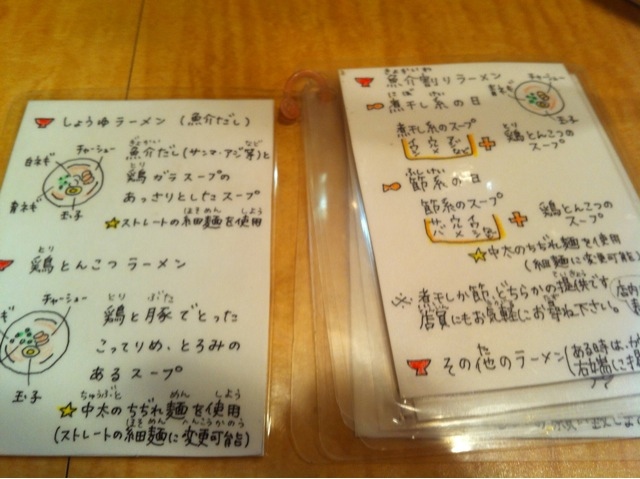 しょうゆラーメン (魚介だし)
チャーシュー
白ネギ
青ネギ
玉子
魚介だし(サンマ・アジ等)と
鶏ガラスープの
あっさりとしたスープ
☆ストレートの細麺を使用
鶏とんこつラーメン
チャーシュー
玉子
鶏と豚でとった
こってりめ、とろみの
あるスープ
☆中太のちぢれ麺を使用
(ストレートの細麺に変更可能)
魚介割りラーメン
煮干し系の日
チャーシュー
青ネギ
玉子
煮干し系のスープ
+
鶏とんこつの
スープ
節系の日
節系のスープ
+
鶏とんこつの
スープ
☆中太のちぢれ麺を使用
(細麺に変更可能)
※煮干しか節、どちらかの提供です
店員にもお気軽にお尋ね下さい。
店内
その他のラーメン(ある時は、
右端に